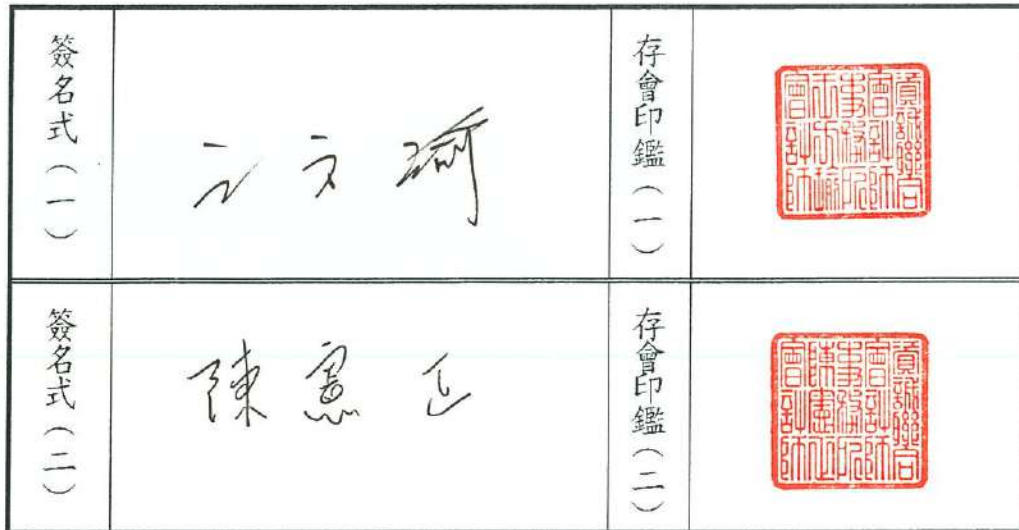 簽名式（一）
王方瑜
存會印鑑（一）
資誠聯合
會計師
事務所
王方瑜
會計師
簽名式（二）
陳憲正
存會印鑑（二）
資誠聯合
會計師
事務所
陳憲正
會計師